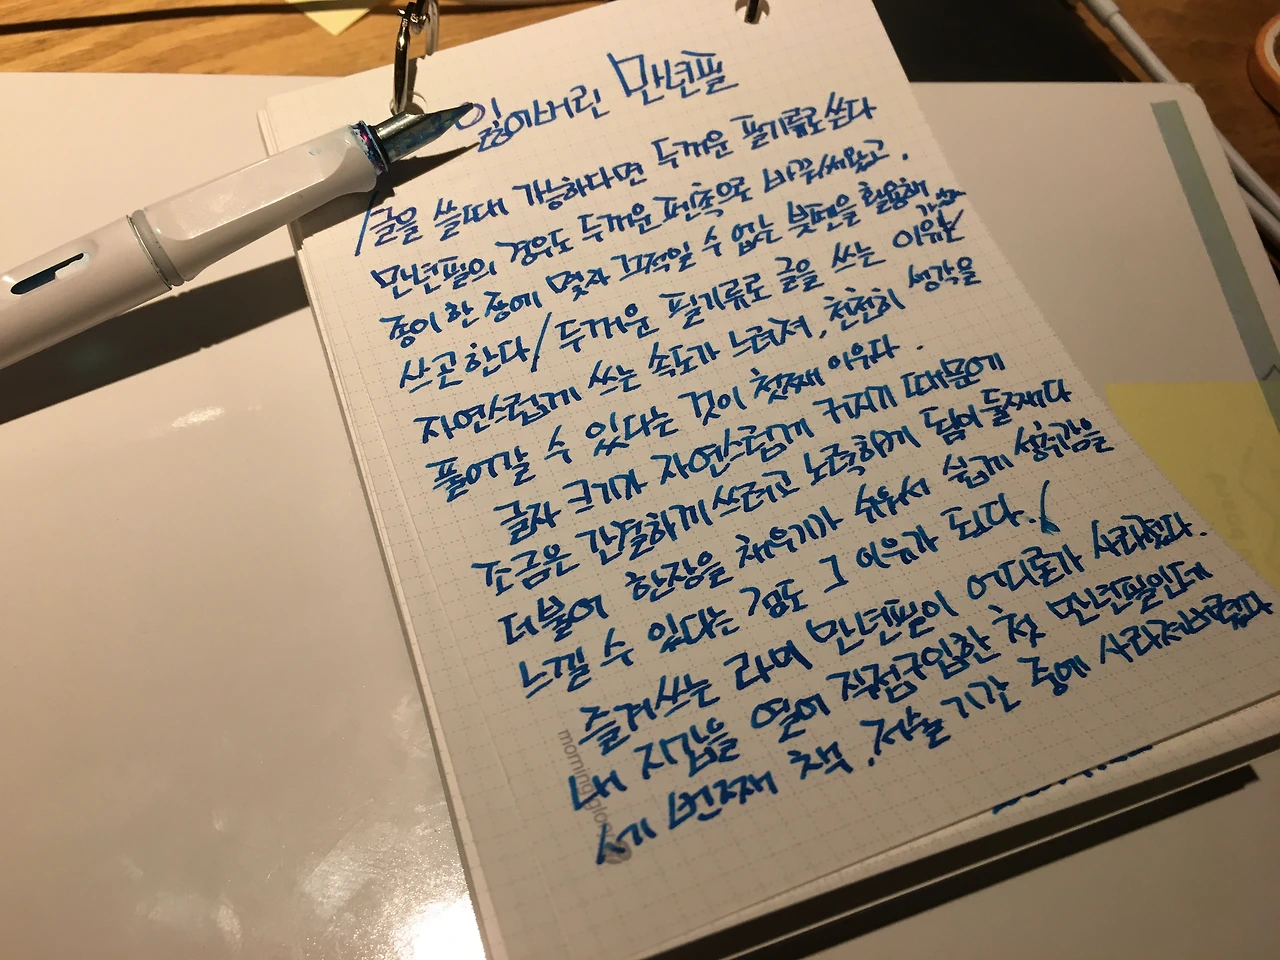 잃어버린 만년필
/글을 쓸때 가능하다면 두꺼운 필기류로 쓴다
만년필의 경우도 두꺼운 펜촉으로 바꿔써왔고.
종이 한 장에 몇자 끄적일 수 없는 붓펜을 활용해
산곤한다/ 두꺼운 필기류로 글을 쓰는 이유는
자연스럽게 쓰는 속도가 느려져, 천천히 생각을
풀어갈 수 있다는 것이 첫째 이유다.
글자 크기가 자연스럽게 커지기 때문에
조금은 간결하게 쓰려고 노력하게 됨이 둘째다
더불어 한장을 채우기가 쉬워서 쉽게 성취감을
느낄 수 있다는 점도 그 이유가 되다./
즐겨쓰는 라미 만년필이 어디론가 사라졌다.
내 지갑을 열어 직접구입한 첫 만년필인데
세 번째 책, 저술 기간 중에 사라져버렸다
morning glory